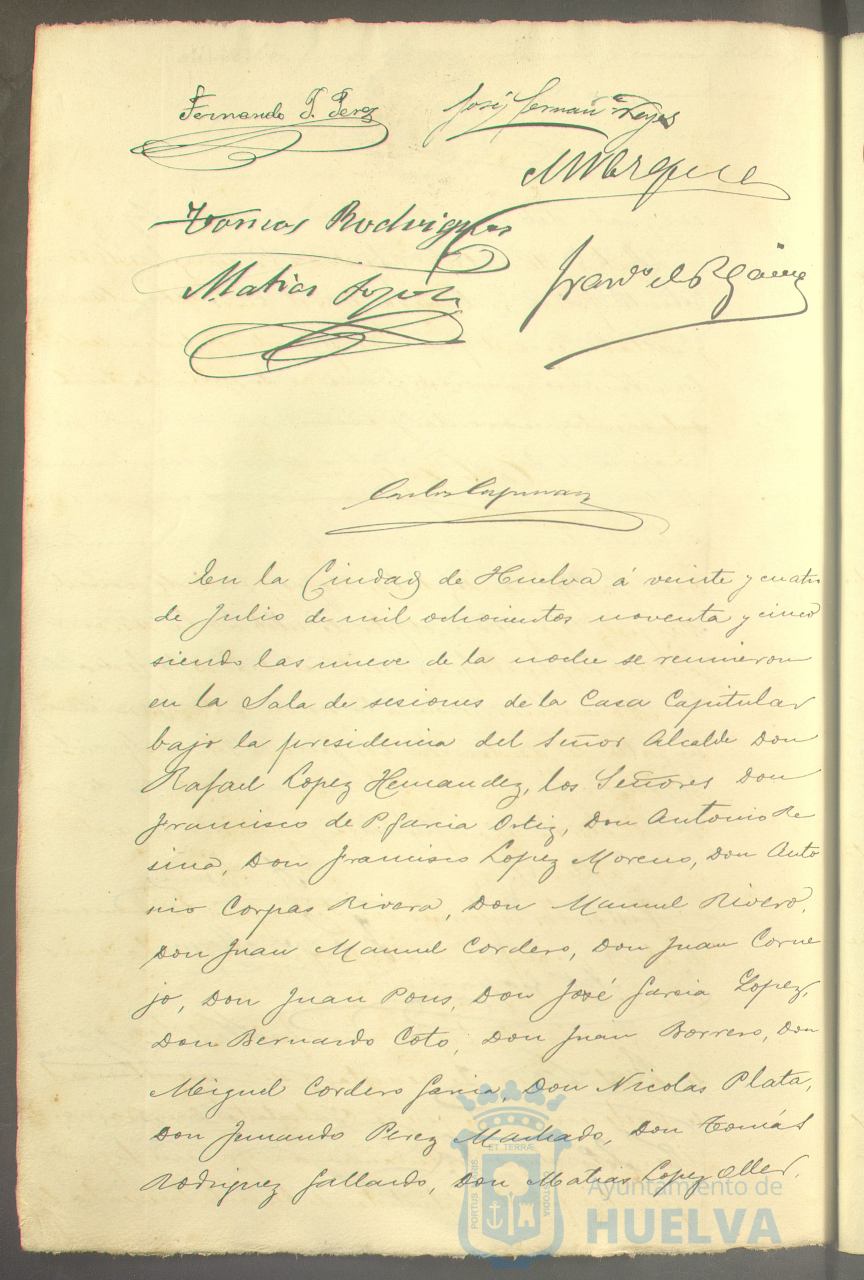 Fernando P. Perez
José Hernan
Marquez
Tomas Rodriguez
Matias Lopez
Franco de P. Garcia
Carlos
En la Ciudad de Huelva á veinte y cuatro
de Julio de mil ochocientos noventa y cinco
siendo las nueve de la noche se reunieron
en la Sala de sesiones de la Casa Capitular
bajo la presidencia del Señor Alcalde Don
Rafael Lopez Hernandez, los Señores Don
Francisco de P. Garcia Ortiz, Don Antonio Re
sina, Don Francisco Lopez Moreno, Don Anto
nio Corpas Rivera, Don Manuel Rivero,
Don Juan Manuel Cordero, Don Juan Corne
jo, Don Juan Pons, Don José Garcia Lopez,
Don Bernardo Coto, Don Juan Borrero, Don
Miguel Cordero Garcia, Don Nicolas Plata,
Don Fernando Perez Machado, Don Tomás
Rodriguez Gallardo, Don Matias Lopez Oller,
PORTUS MARIS
ET TERRÆ
CUSTODIA
Ayuntamiento de
HUELVA